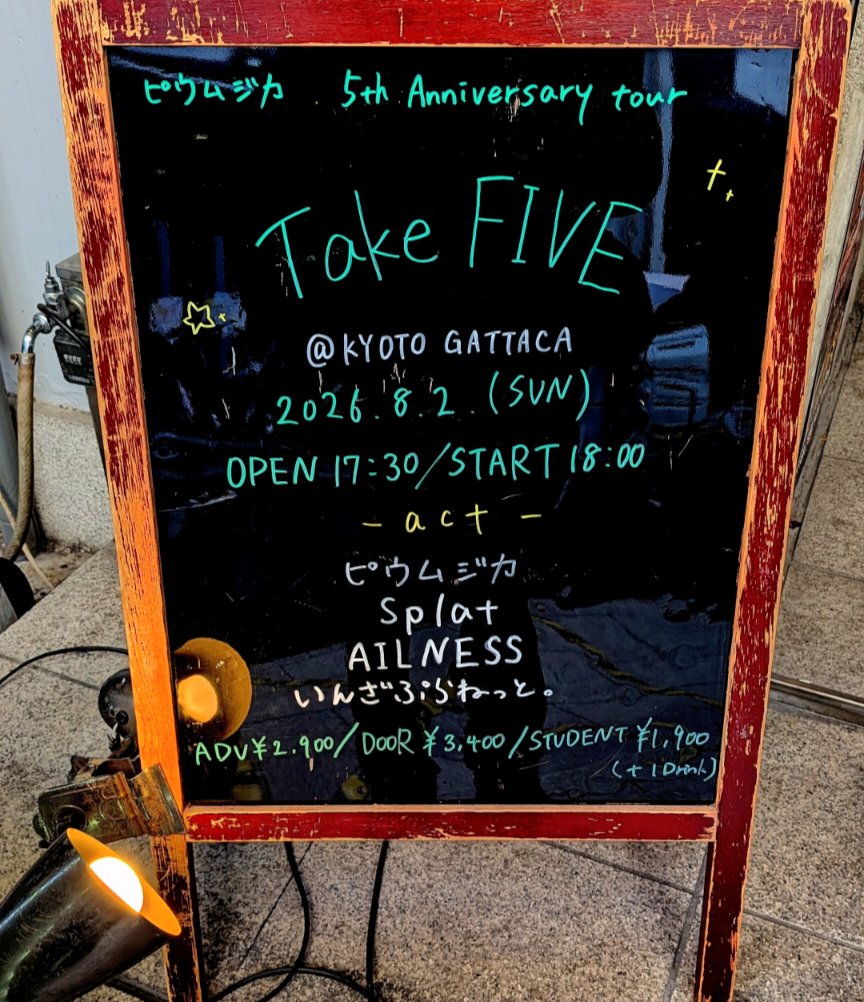 ピウムジカ 5th Anniversary tour
Take FIVE
@KYOTO GATTACA
2026.8.2.(SUN)
OPEN 17:30/START 18:00
- act -
ピウムジカ
Splat
AILNESS
いんざぷらねっと。
ADV¥2.900/DOOR ¥3.400/STUDENT ¥1.900
(+1Drink)